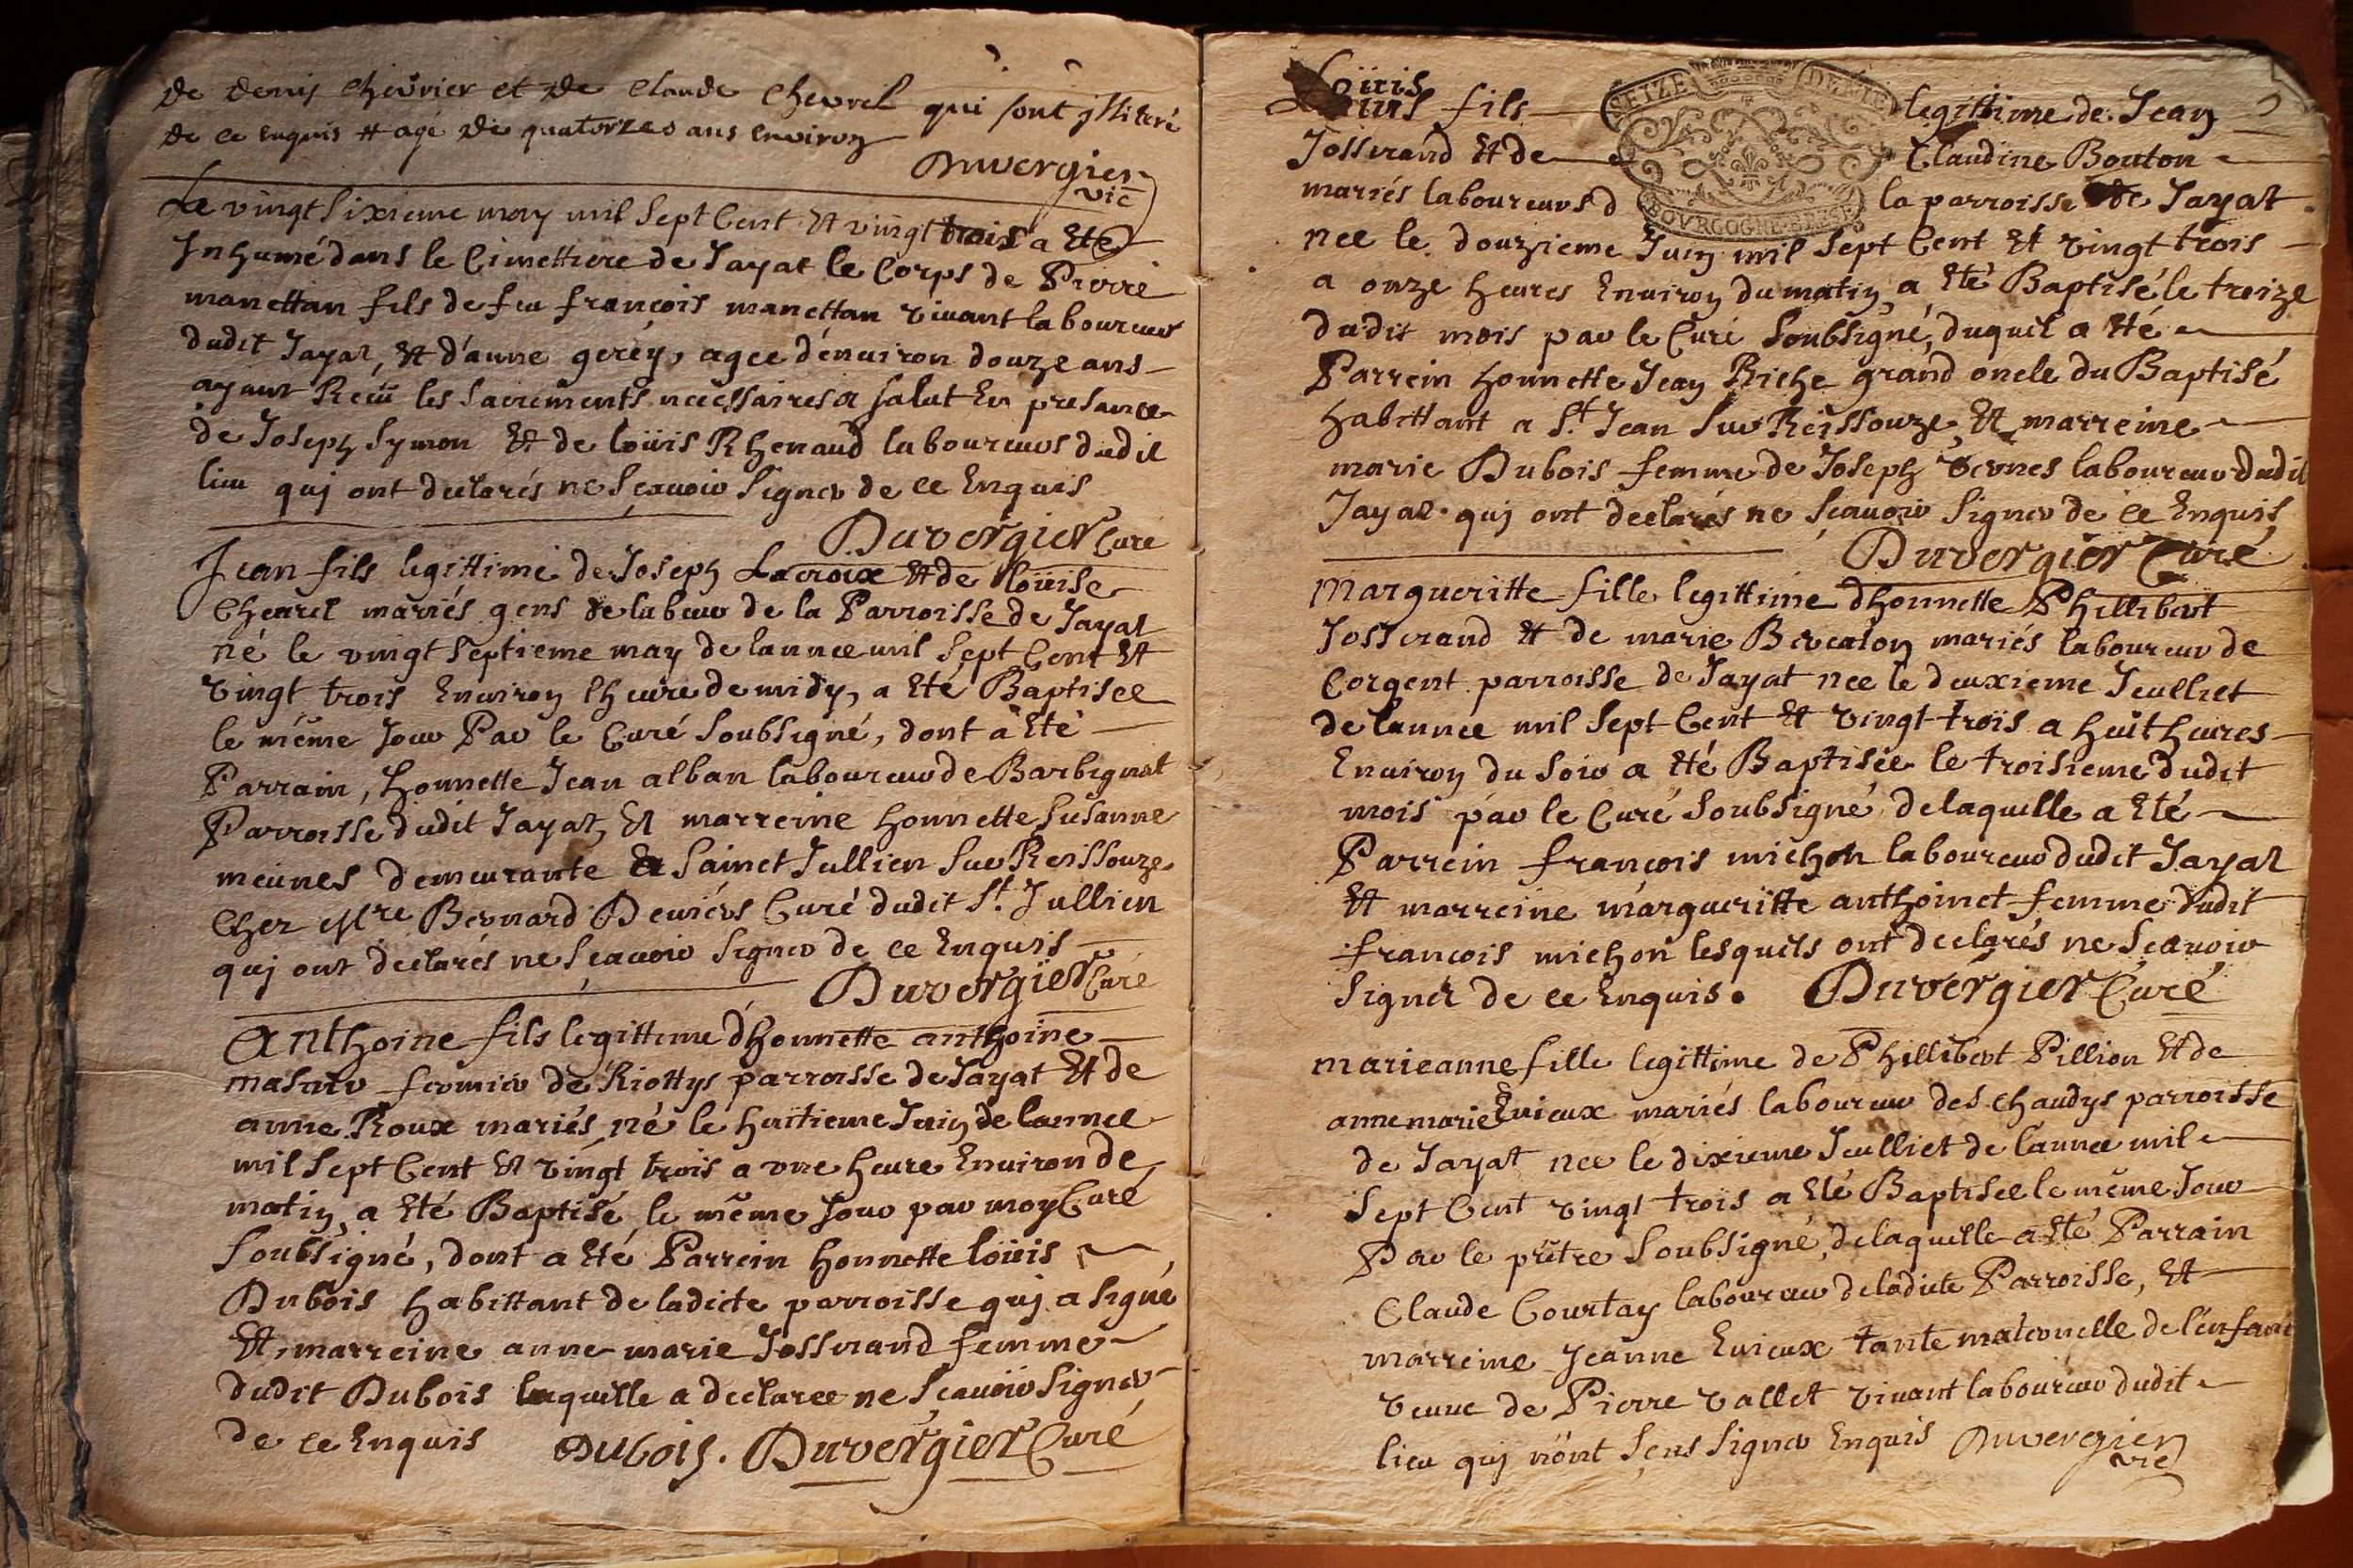 de denis chevrier et de claude chevrel qui sont illiteré
de ce enquis et agé de quatorzes ans environ
Duvergier
vic
Le vingt sixieme may mil sept Cent Et vingt trois a Eté
Inhumé dans le Cimettiere de Jayat le Corps de Pierre
manettan fils de feu francois manettan vivant laboureur
dudit Jayat, Et d'anne gerey, agee d'enuiron douze ans
ayant Receü les sacrements necessaires a salut En presance
de Joseph symon Et de loüis Rhenaud laboureurs dudit
lieu quj ont declarés ne sçauoir signer de ce Enquis
Duvergier Curé
Jean fils legittime de Joseph Lacroix Et de loüise
Cheurel mariés gens de labeur de la Parroisse de Jayat
né le vingt septieme may de lannee mil sept Cent Et
vingt trois Enuiron lheure de midy, a Eté Baptisee
le même Jour Par le Curé soubsigné, dont a Eté
Parrain, honnette Jean alban laboureur de Barbignat
Parroisse dudit Jayat, Et marreine honnette Susanne
meunes demeurante a sainct Jullien sur Reissouze
Chez Mre Bernard Deuiers Curé dudit St. Jullien
quj ont declarés ne sçauoir signer de ce Enquis
Duvergier Curé
Anthoine fils legittime d'honnette anthoine
masuir fermier de Riottys parroisse de Jayat Et de
anne Roux mariés né le huitieme Juin de lannee
mil sept Cent Et vingt trois a vne heure Enuiron de
matin, a Eté Baptisé le même Jour par moy Curé
soubsigné, dont a Eté Parrein honnette loüis
Dubois habittant de ladicte parroisse quj a signé
Et marreine anne marie Josserand femme
dudit Dubois laquelle a declaree ne sçauoir signer
de ce Enquis Dubois. Duvergier Curé
Loüis
fils legittime de Jean
Josserand Et de Claudine Bouton
mariés laboureurs d la parroisse de Jayat
nee le douzieme Juin mil sept Cent Et vingt trois
a onze heures Enuiron du matin a Eté Baptisé le treize
dudit mois par le Curé soubsigné, duquel a Eté
Parrein honnette Jean Riche grand oncle du Baptisé
habittant a St. Jean sur Reissouze, Et marreine
marie Dubois femme de Joseph vernes laboureur dudit
Jayat quj ont declarés ne sçauoir signer de ce Enquis
Duvergier Curé
Margueritte fille legittime d'honnette Phillibert
Josserand Et de marie Brevalon mariés laboureur de
Corgent parroisse de Jayat nee le deuxieme Jeulliet
de lannee mil sept Cent Et vingt trois a huit heures
Enuiron du soir a Eté Baptisée le troisieme dudit
mois par le Curé soubsigné delaquelle a Eté
Parrein francois michon laboureur dudit Jayat
Et marreine margueritte anthoinet femme dudit
francois michon lesquels ont declarés ne sçauoir
signer de ce Enquis. Duvergier Curé
marieanne fille legittime de Phillibert Pillion Et de
annemarie Euieux mariés laboureur des chaudys parroisse
de Jayat nee le dixieme Jeulliet de l'annee mil
sept Cent vingt trois a Eté Baptisee le même Jour
Par le prêtre soubsigné, delaquelle a Eté Parrain
Claude Courtay laboureur deladicte Parroisse, Et
marreine Jeanne Euieux tante maternelle de l'enfant
veuue de Pierre vallet viuant laboureur dudit
lieu quj n'ont sçeus signer Enquis Duvergier
vic
SEIZE DEN
BOVRGOGNE BRESSE